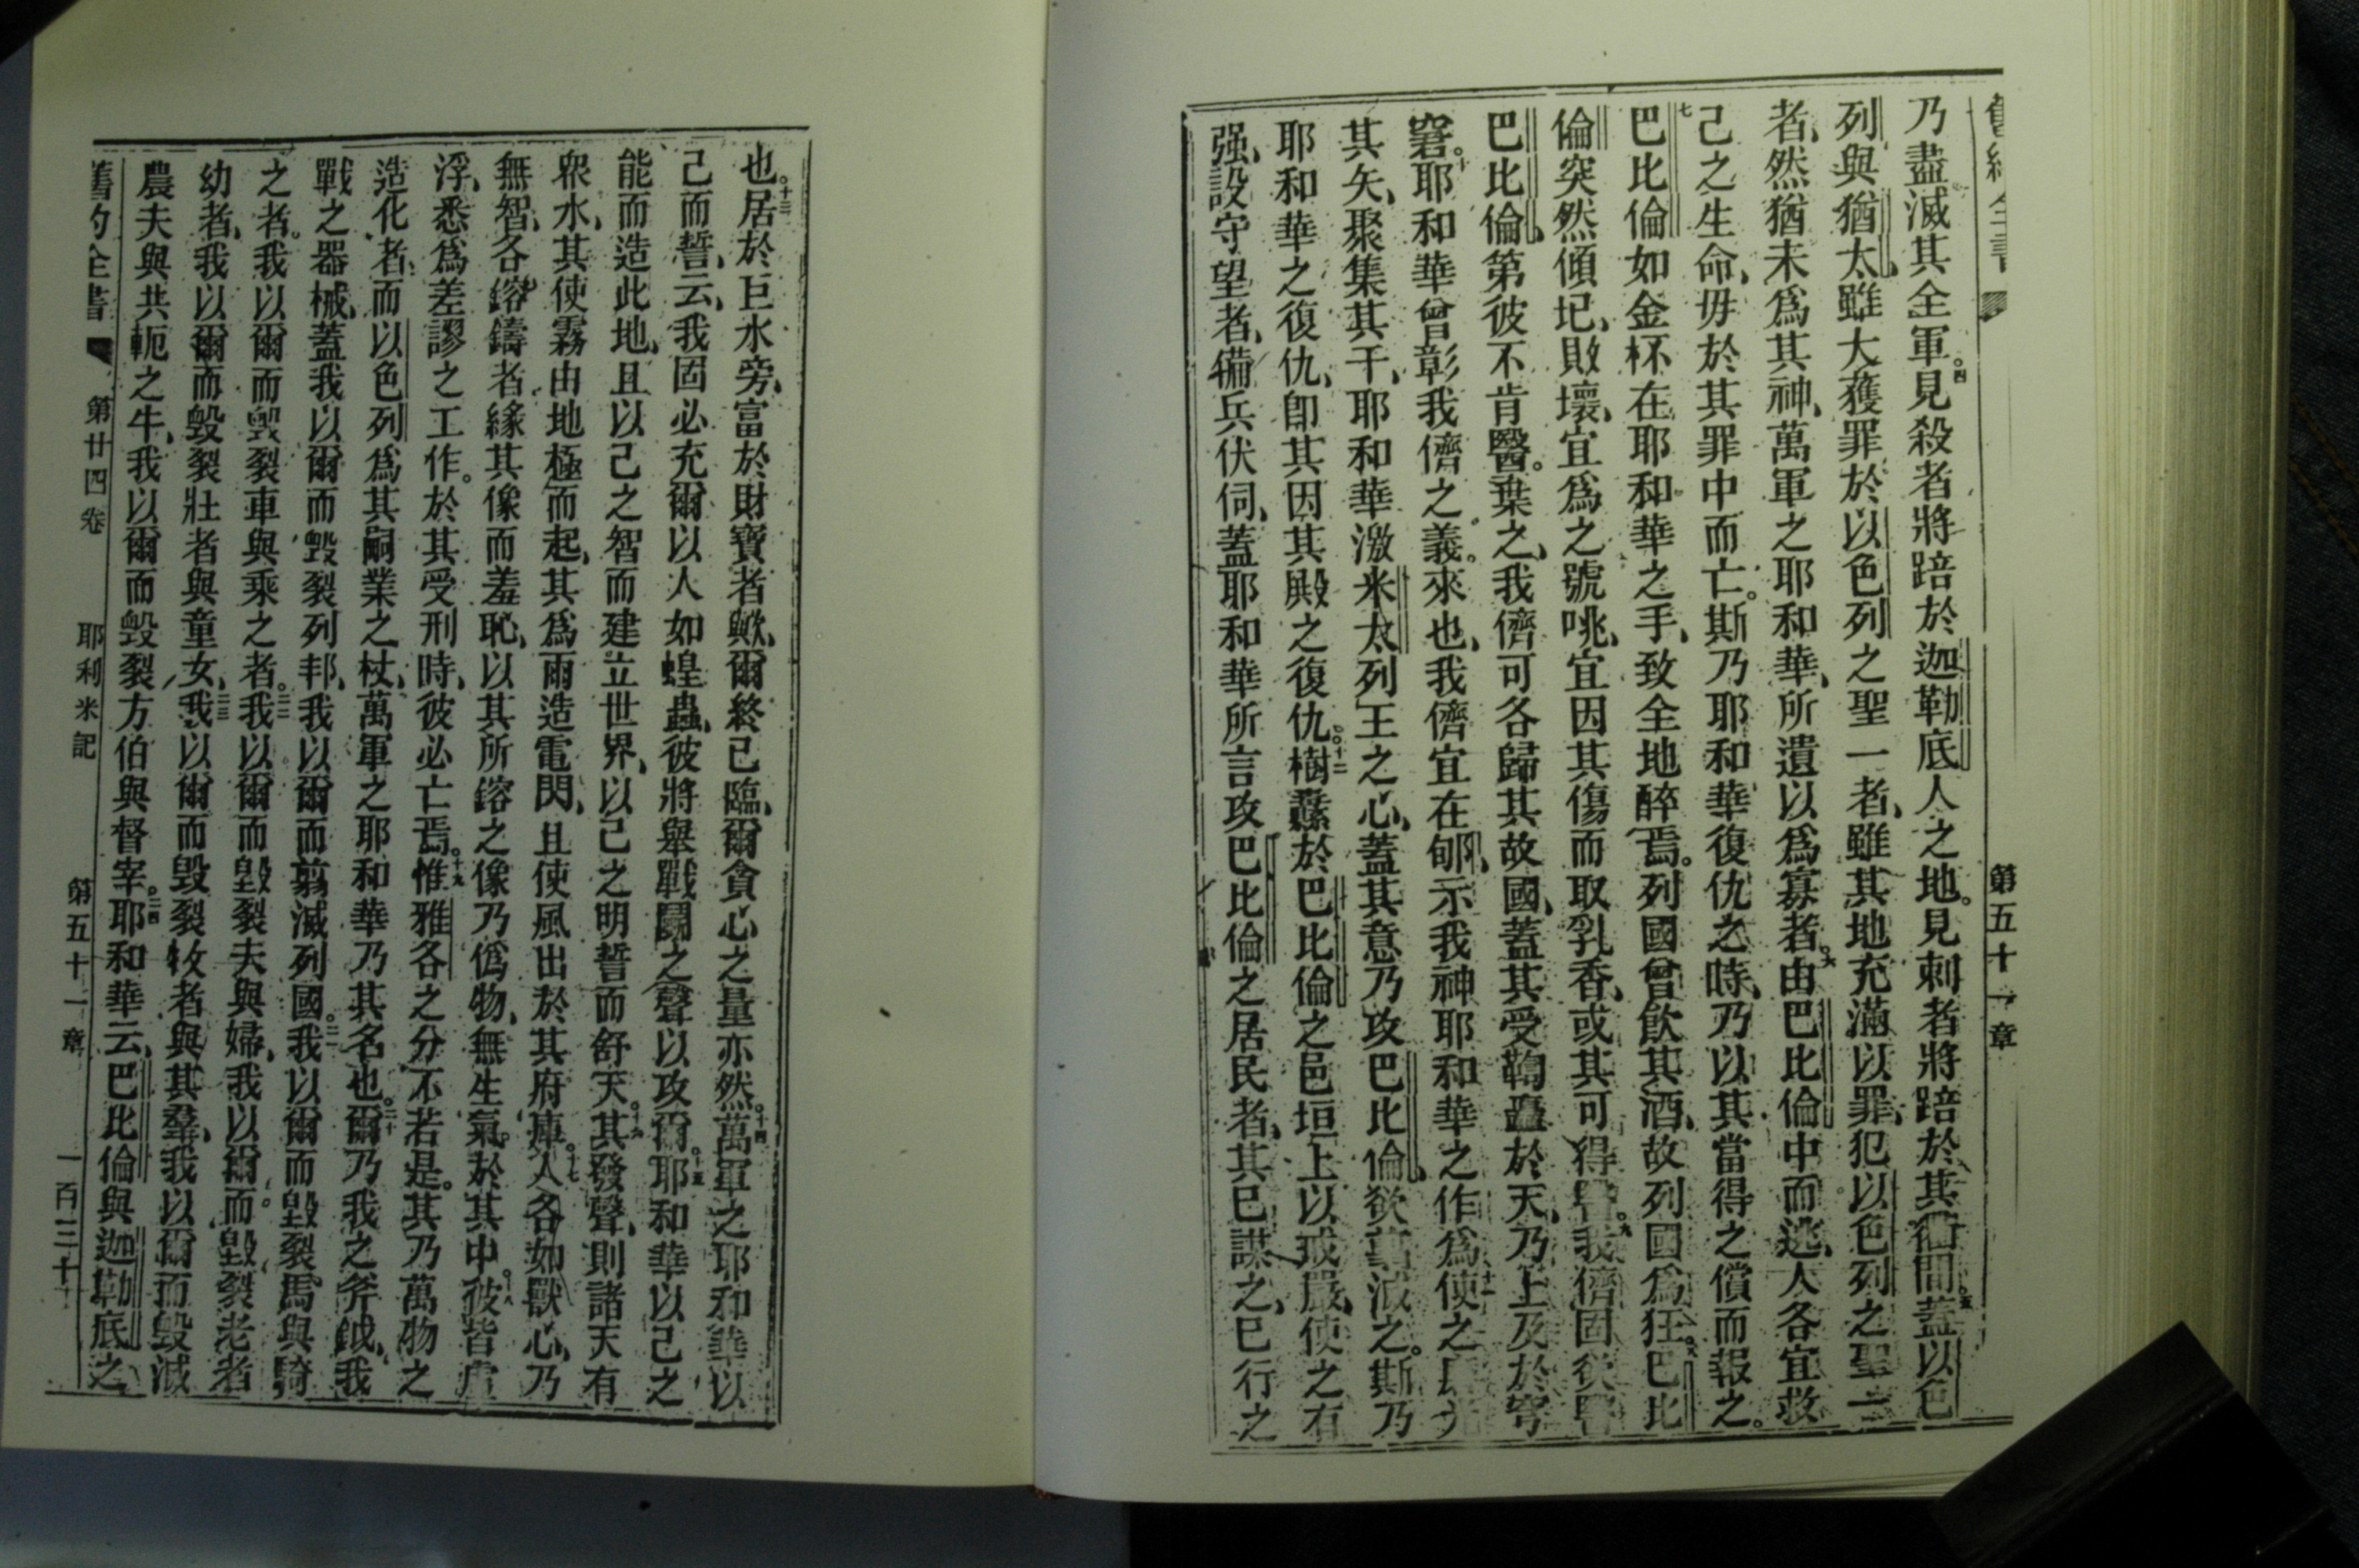 第五十一章
乃盡滅其全軍。四見殺者將踣於迦勒底人之地。見刺者將踣於其衢間。五蓋以色
列與猶太、雖大獲罪於以色列之聖一者、雖其地充滿以罪、犯以色列之聖一
者、然猶未爲其神、萬軍之耶和華、所遺以爲寡者。六由巴比倫中而逃、人各宜救
己之生命、毋於其罪中而亡。斯乃耶和華復仇之時、乃以其當得之償而報之。
七巴比倫如金杯在耶和華之手、致全地醉焉。列國曾飲其酒、故列國爲狂。八巴比
倫突然傾圮、敗壞、宜爲之號咷、宜因其傷而取乳香、或其可得醫。九我儕固欲醫
巴比倫、第彼不肯醫。棄之、我儕可各歸其故國、蓋其受鞫上於天、乃上及於穹
窘。十耶和華曾彰我儕之義。來也、我儕宜在郇、示我神耶和華之作爲。十一使之
其矢、聚集其干、耶和華激米太列王之心、蓋其意乃攻巴比倫、欲滅之。斯乃
耶和華之復仇、卽其因其殿之復仇。十二樹纛於巴比倫之邑垣上、以戒嚴、使之有
强、設守望者、備兵伏伺、蓋耶和華所言攻巴比倫之居民者、其已謀之、已行之
也。十三居於巨水旁、富於財寶者歟、爾終已臨、爾貪心之量亦然。十四萬軍之耶和華以
己而誓云、我固必充爾以人如蝗蟲、彼將舉戰鬬之聲以攻爾。十五耶和華以己之
能而造此地、且以己之智而建立世界、以己之明誓而舒天。十六其發聲、則諸天有
衆水、其使霧由地極而起、其爲雨造電閃、且使風出於其府庫。十七人各如獸心、乃
無智、各鎔鑄者緣其像而羞恥、以其所鎔之像乃僞物、無生氣。於其中。十八彼皆虛
浮、悉爲差謬之工作。於其受刑時、彼必亡焉。十九惟雅各之分不若是。其乃萬物之
造化者、而以色列爲其嗣業之杖、萬軍之耶和華乃其名也。二十爾乃我之斧鉞、我
戰之器械、蓋我以爾而毀裂列邦、我以爾而翦滅列國。二一我以爾而毀裂馬與騎
之者。我以爾而毀裂車與乘之者。二二我以爾而毀裂夫與婦、我以爾而毀裂老者
幼者、我以爾而毀裂壯者與童女、二三我以爾而毀裂牧者與其羣、我以爾而毀滅
農夫與共軛之牛、我以爾而毀裂方伯與督宰。二四耶和華云、巴比倫與迦勒底之
舊約全書 第廿四卷 耶利米記 第五十一章 一百三十